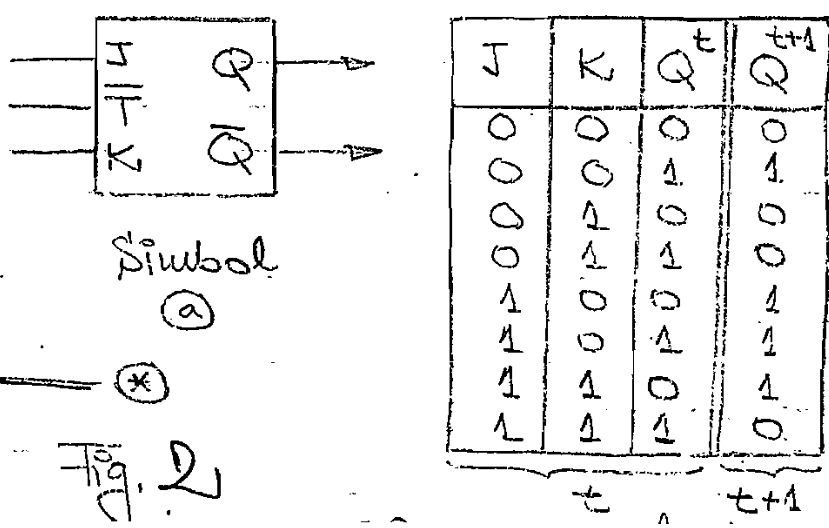 J Q
T̅
K Q̅
Simbol
a
*
Fig. 2
J K Qᵗ Qᵗ⁺¹
0 0 0 0
0 0 1 1
0 1 0 0
0 1 1 0
1 0 0 1
1 0 1 1
1 1 0 1
1 1 1 0
t t+1